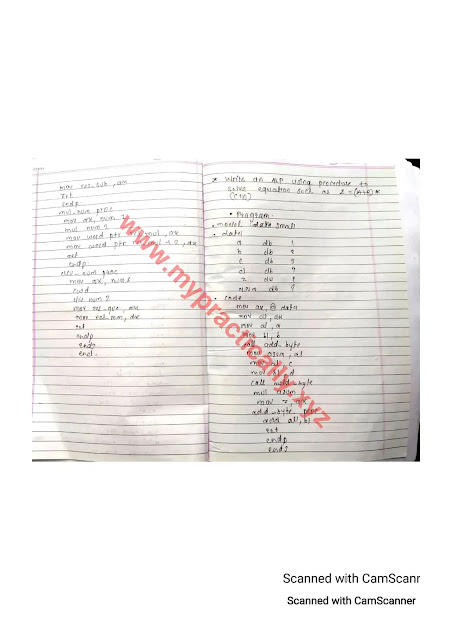 mov res_sub, ax
ret
endp
mul_num proc
mov ax, num 1
mul num 2
mov word ptr ax
mov word ptr + 2, dx
ret
endp
div_num proc
mov ax, num 1
cwd
div num 2
mov res_quo, ax
mov res_rem, dx
ret
endp
endp
end
* Write an ALP using procedure to
solve equation such as Z = (A+B) *
(C+D)
• Program
.model small
.data
a db 1
b db
c db
d db ?
z dw ?
asum db ?
.code
mov ax, @ data
mov
mov al, a
mov bl, b
call add_byte
mov asum, al
c
d
call add_byte
mul asum
mov z, ax
add_byte proc
add al, bl
ret
endp
ends
www.mypractically.xyz
Scanned with CamScanr
Scanned with CamScanner